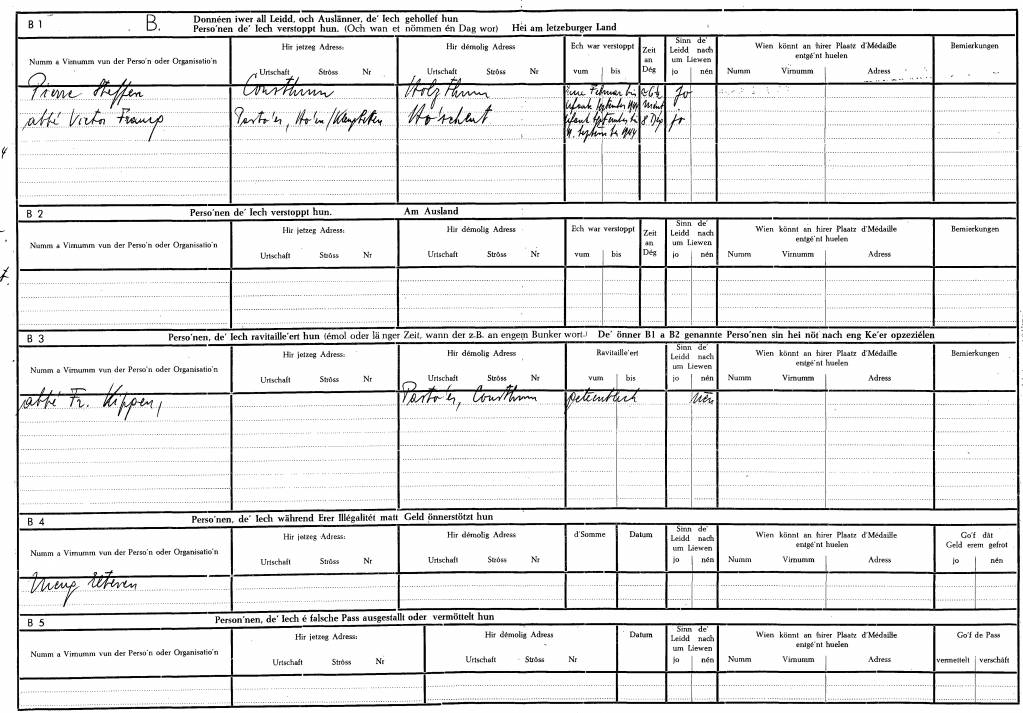 B 1 B. Donnéen iwer all Leidd, och Auslänner, de' Iech gehollef hun
Perso'nen de' Iech verstoppt hun. (Och wan et nömmen én Dag wor) Hei am letzeburger Land
Numm a Virnumm vun der Perso'n oder Organisatio'n Hir jetzeg Adress: Hir démolig Adress Ech war verstoppt Zeit an Dég Sinn de' Leidd nach um Liewen Wien könnt an hirer Plaatz d'Médaille entgé'nt huelen Bemierkungen
Urtschaft Ströss Nr Urtschaft Ströss Nr vum bis jo nén Numm Virnumm Adress
Pierre Steffen Consthum Holzthum Februar bis September 1944 jo
abbé Victor Pasto'er, Ho'schent September bis 8 Dég jo
September 1944
B 2 Perso'nen de' Iech verstoppt hun. Am Ausland
Numm a Virnumm vun der Perso'n oder Organisatio'n Hir jetzeg Adress: Hir démolig Adress Ech war verstoppt Zeit an Dég Sinn de' Leidd nach um Liewen Wien könnt an hirer Plaatz d'Médaille entgé'nt huelen Bemierkungen
Urtschaft Ströss Nr Urtschaft Ströss Nr vum bis jo nén Numm Virnumm Adress
B 3 Perso'nen, de' Iech ravitaille'ert hun (émol oder länger Zeit, wann der z.B. an engem Bunker wort.) De' önner B1 a B2 genannte Perso'nen sin hei nöt nach eng Ke'er opzeziélen
Numm a Virnumm vun der Perso'n oder Organisatio'n Hir jetzeg Adress: Hir démolig Adress Ravitaille'ert Sinn de' Leidd nach um Liewen Wien könnt an hirer Plaatz d'Médaille entgé'nt huelen Bemierkungen
Urtschaft Ströss Nr Urtschaft Ströss Nr vum bis jo nén Numm Virnumm Adress
abbé Fr. Kippen, Pasto'er, Consthum nén
B 4 Perso'nen, de' Iech während Erer Illégalitét matt Geld önnerstötzt hun
Numm a Virnumm vun der Perso'n oder Organisatio'n Hir jetzeg Adress: Hir démolig Adress d'Somme Datum Sinn de' Leidd nach um Liewen Wien könnt an hirer Plaatz d'Médaille entgé'nt huelen Go'f dât Geld erem gefrot
Urtschaft Ströss Nr Urtschaft Ströss Nr jo nén Numm Virnumm Adress jo nén
Meng Elteren
B 5 Person'nen, de' Iech é falsche Pass ausgestallt oder vermöttelt hun
Numm a Virnumm vun der Perso'n oder Organisatio'n Hir jetzeg Adress: Hir démolig Adress Datum Sinn de' Leidd nach um Liewen Wien könnt an hirer Plaatz d'Médaille entgé'nt huelen Go'f de Pass
Urtschaft Ströss Nr Urtschaft Ströss Nr jo nén Numm Virnumm Adress vermettelt verschâft